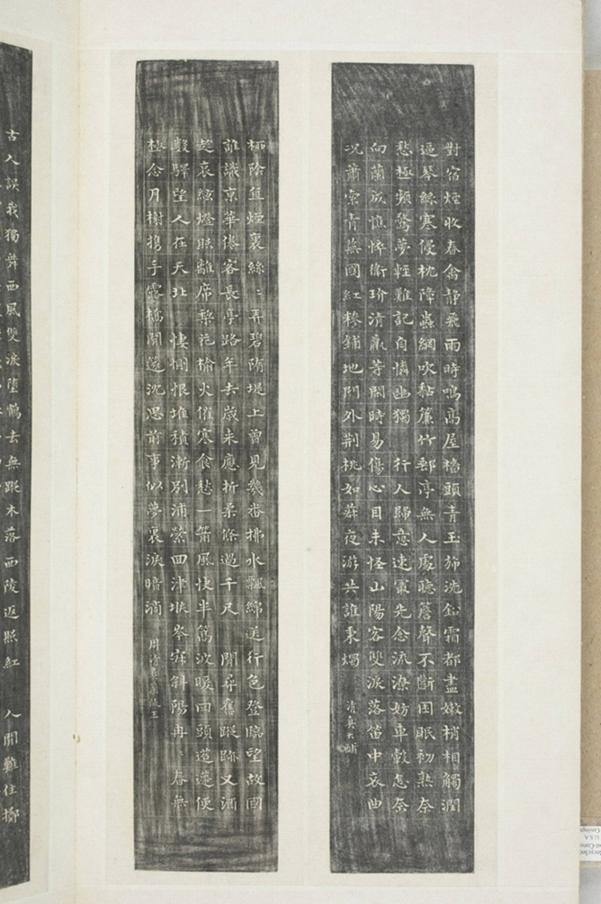 對宿煙收春禽靜飛雨時鳴高屋牆頭青玉旆洗鉛霜都盡嫩梢相觸潤
逼琴絲寒侵枕障蟲網吹黏簾竹郵亭無人處聽簷聲不斷困眠初熟奈
愁極頻驚夢輕難記自憐幽獨　行人歸意速最先念流潦妨車轂怎奈
向蘭成憔悴衛玠清羸等閒時易傷心目未怪山陽客雙淚落笛中哀曲
況蕭索青蕪國紅糝鋪地門外荊桃如菽夜游共誰秉燭　清真大酺
柳陰直煙裏絲〻弄碧隋堤上曾見幾番拂水飄綿送行色登臨望故國
誰識京華倦客長亭路年去歲來應折柔條過千尺　閒尋舊蹤跡又酒
趁哀絃燈照離席梨花榆火催寒食愁一箭風快半篙波暖回頭迢遞便
數驛望人在天北　悽惻恨堆積漸別浦縈回津堠岑寂斜陽冉〻春無
極念月榭攜手露橋聞邃沈思前事似夢裏淚暗滴　周清真蘭陵王
古人誤我獨舞西風雙淚墮鶴去無蹤木落西陵返照紅　人間難住擲